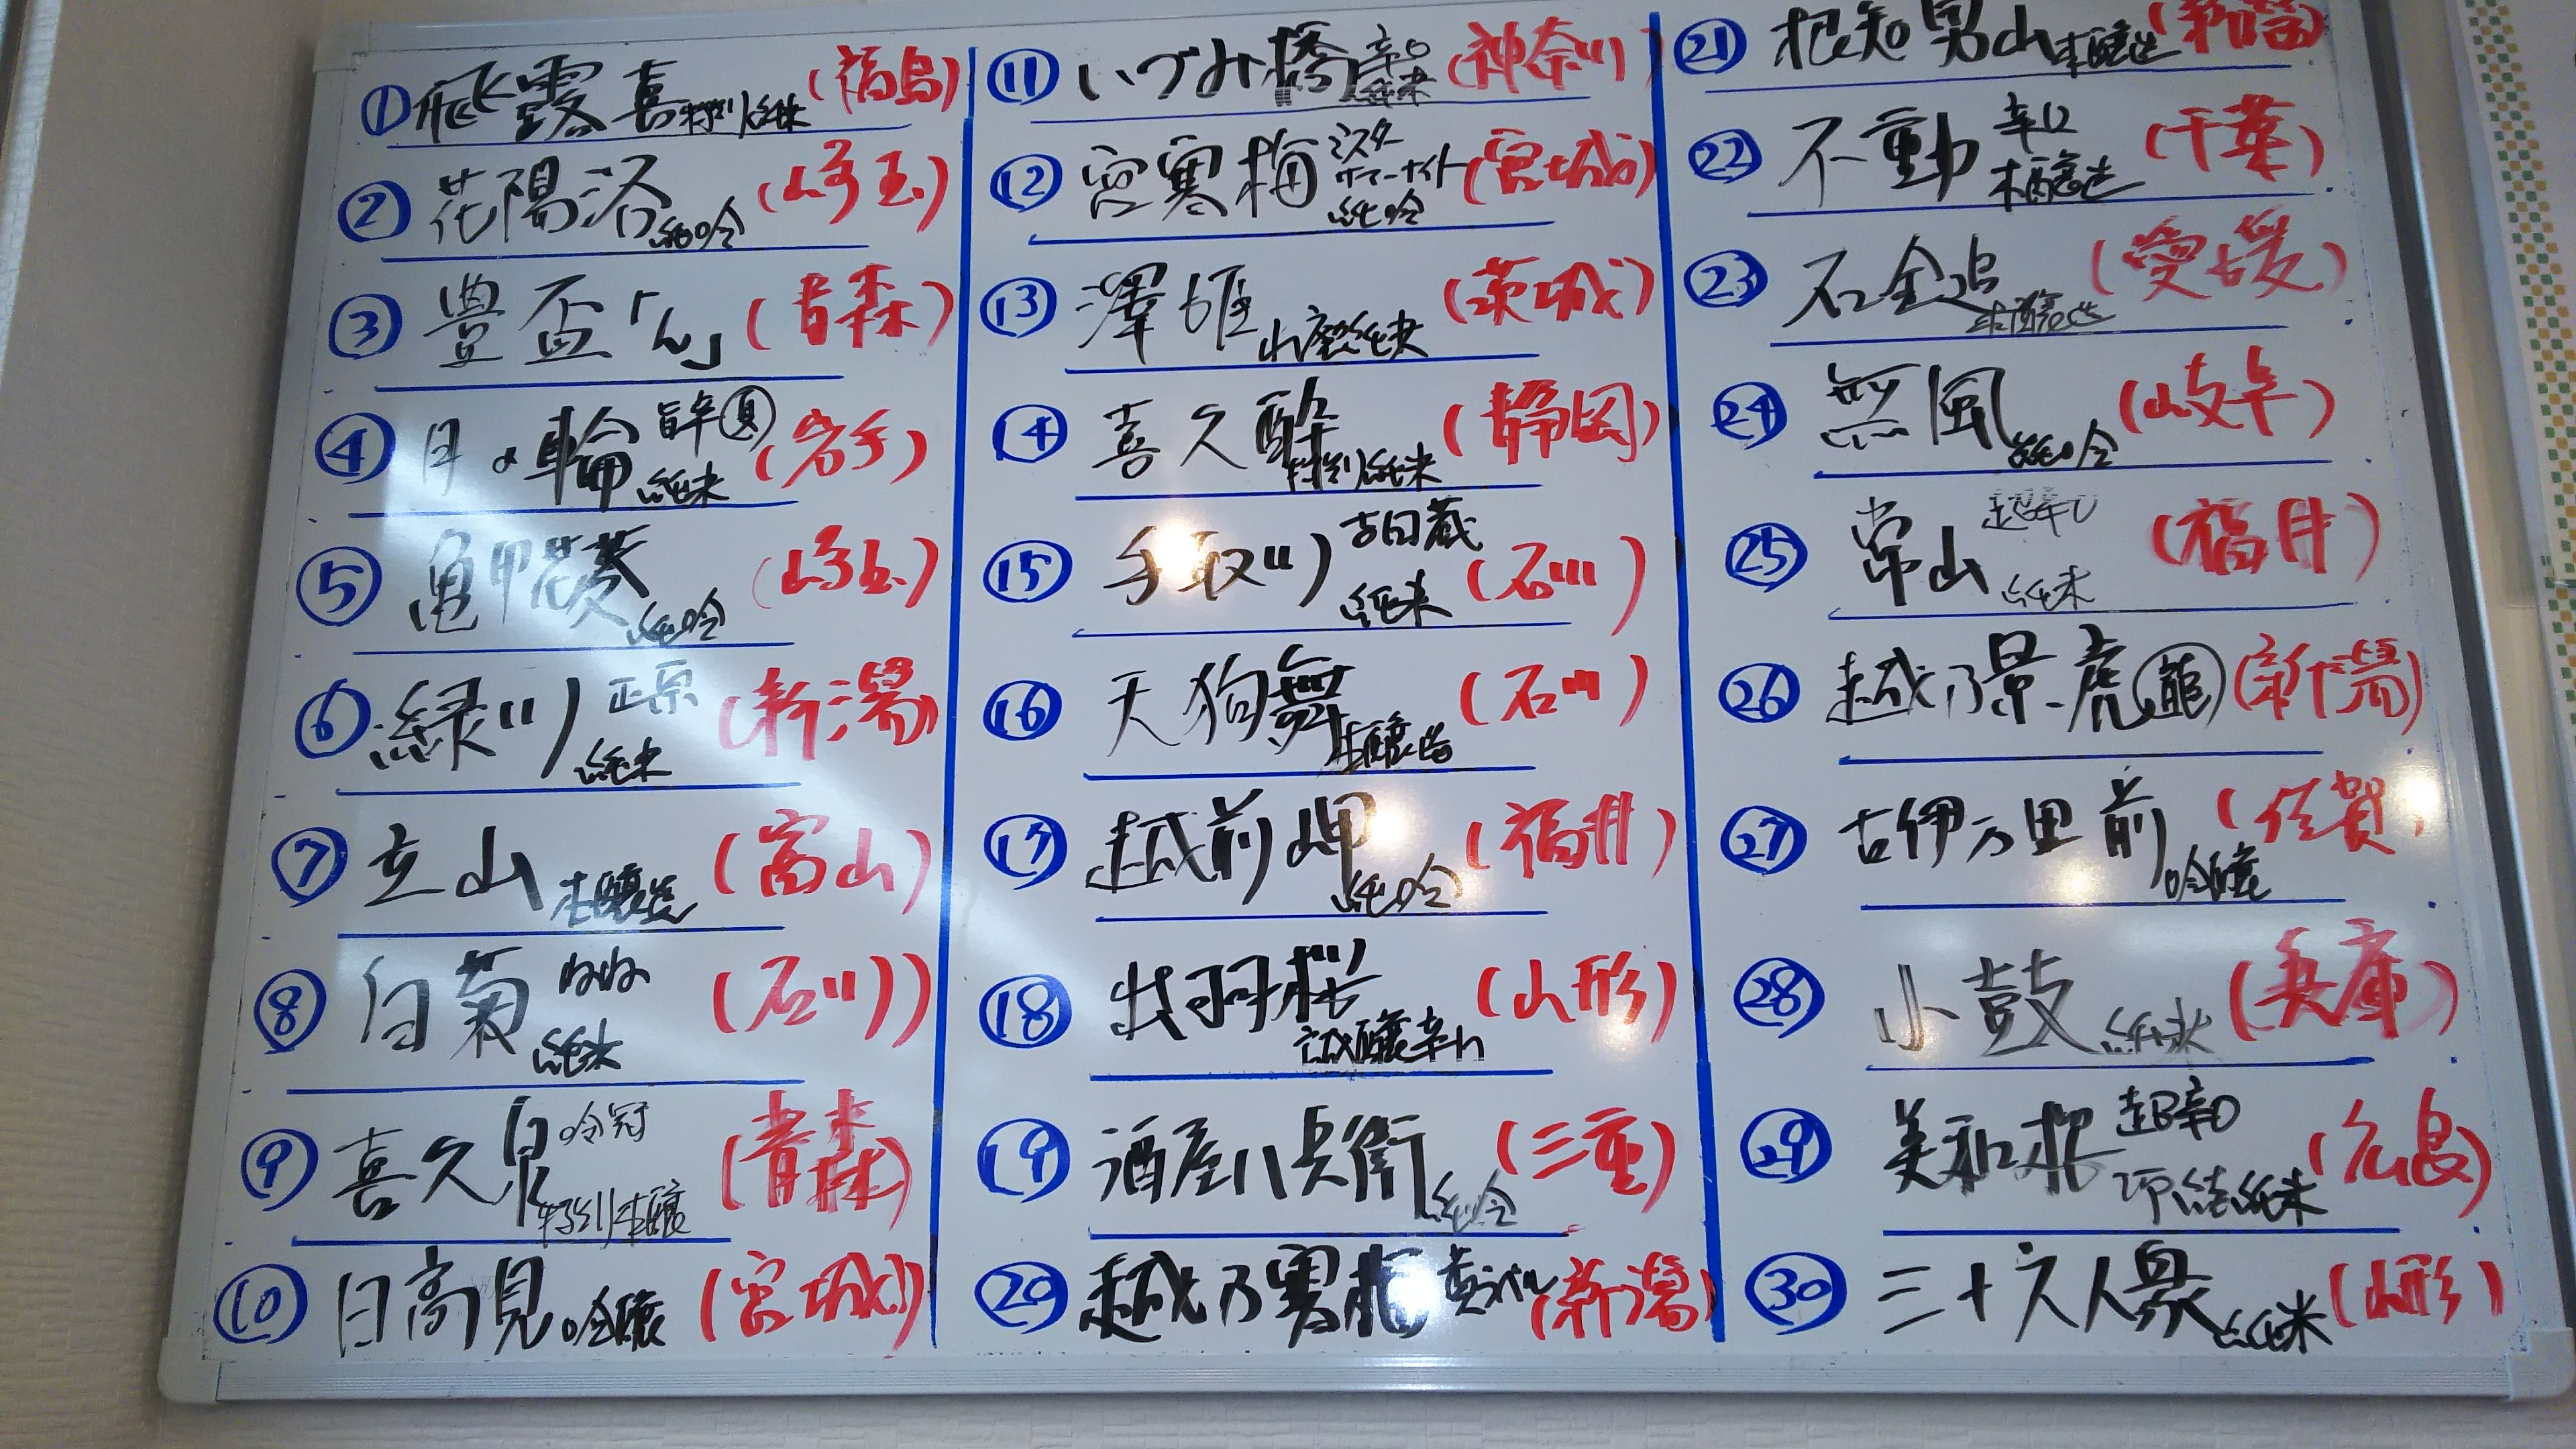 ① 飛露喜 特別純米 (福島)
② 花陽浴 純吟 (埼玉)
③ 豊盃「ん」 (青森)
④ 月の輪 旨辛 夏 純米 (岩手)
⑤ 亀甲花菱 純吟 (埼玉)
⑥ 緑川 正宗 純米 (新潟)
⑦ 立山 本醸造 (富山)
⑧ 白菊 純米 (石川)
⑨ 喜久泉 吟冠 特別本醸 (青森)
⑩ 日高見 吟醸 (宮城)
⑪ いづみ橋 辛口 純米 (神奈川)
⑫ 宮寒梅 ミスターサマータイム 純吟 (宮城)
⑬ 澤姫 山廃純米 (茨城)
⑭ 喜久酔 特別純米 (静岡)
⑮ 手取川 吉田蔵 純米 (石川)
⑯ 天狗舞 本醸造 (石川)
⑰ 越前岬 純吟 (福井)
⑱ 出羽桜 誠醸辛口 (山形)
⑲ 酒屋八兵衛 純吟 (三重)
⑳ 越乃寒梅 (新潟)
㉑ 根知男山 本醸造 (新潟)
㉒ 不動 辛口 本醸造 (千葉)
㉓ 石鎚 本醸造 (愛媛)
㉔ 無風 純吟 (岐阜)
㉕ 常山 超辛口 純米 (福井)
㉖ 越乃景虎 龍 (新潟)
㉗ 古伊万里 前 吟醸 (佐賀)
㉘ 小鼓 純米 (兵庫)
㉙ 美和桜 超辛口 純米 (広島)
㉚ 三十六人衆 純米 (山形)